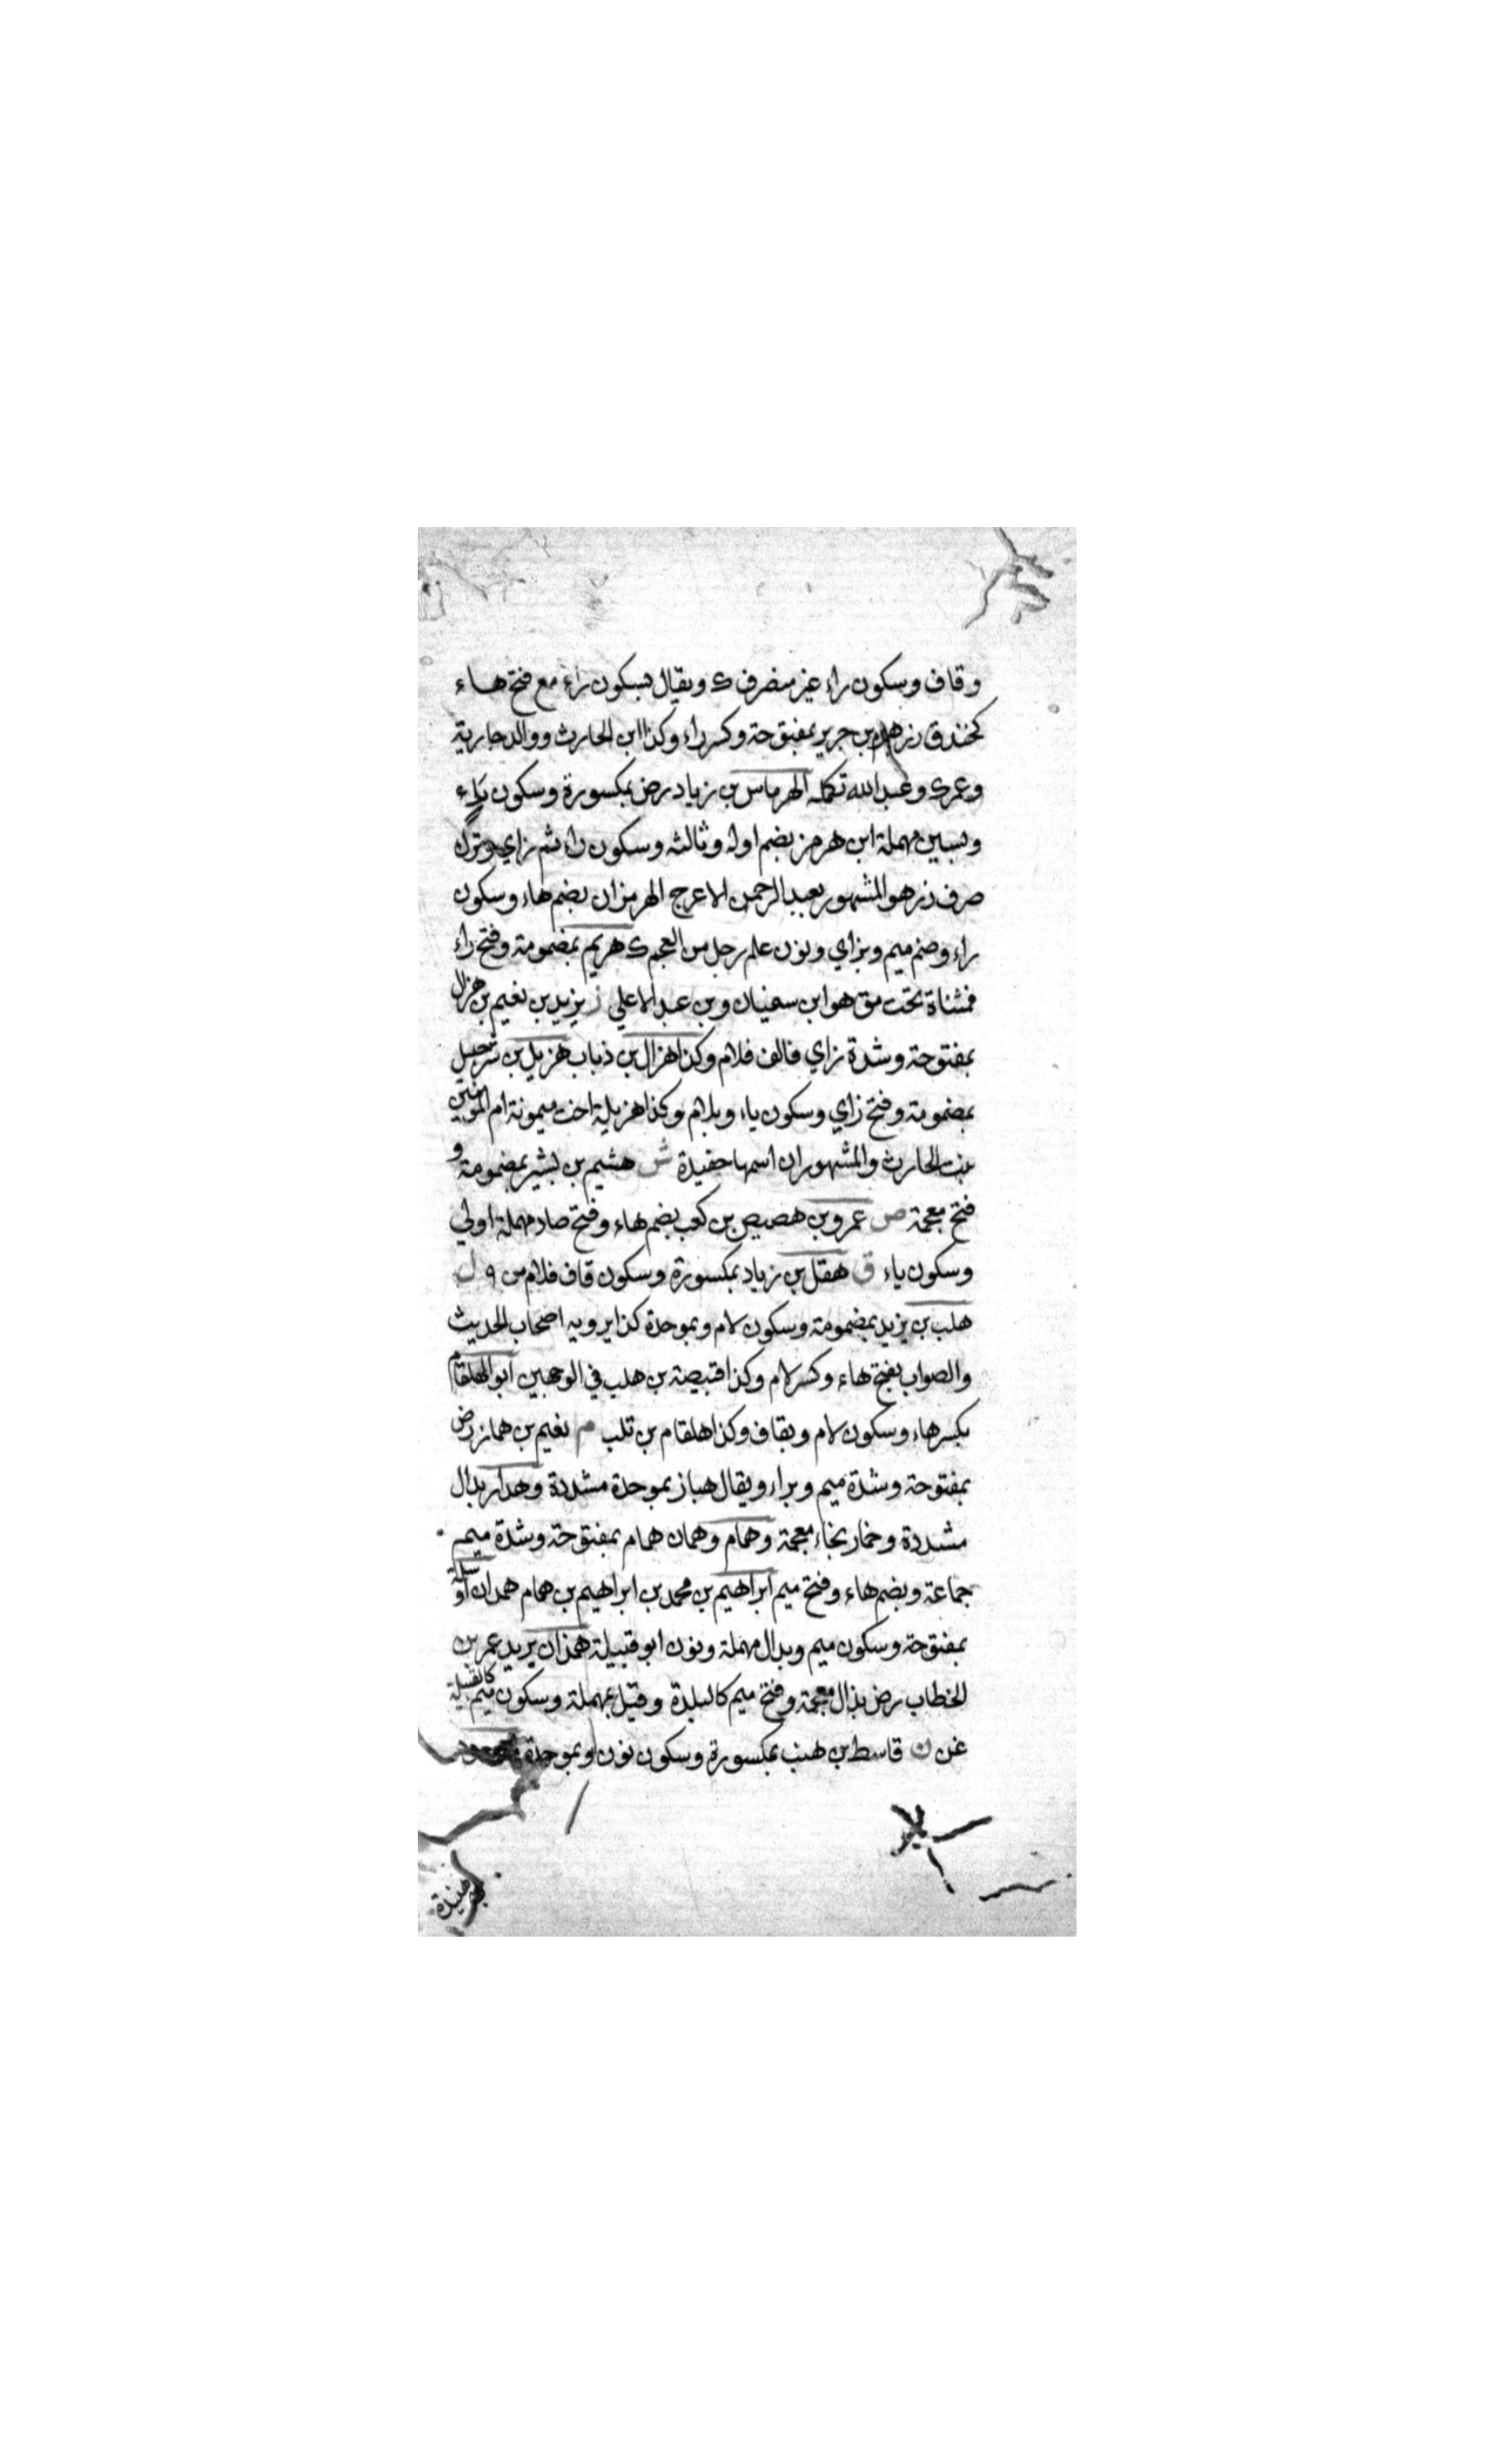 وقاف وسكون راء غير منصرف ك ويقال بسكون راء مع فتح هاء
كخندق نر هرم بن جرير بمفتوحة وكسر راء وكذا ابن الحارث ووالد جارية
وعمرك وعبد الله تكمله الهرماس بن زياد رض بمكسورة وسكون راء
وبسين مهملة ابن هرمز بضم اوله وثالثه وسكون راء ثم زاي وترك
صرف نر هو المشهور بعبد الرحمن الاعرج الهرمزان بضم هاء وسكون
راء وضم ميم وبزاي ونون علم رجل من العجم ك هريم بمضمومة وفتح راء
فمثناة تحت مق هو ابن سفيان وبن عبد الاعلي ز يزيد بن نعيم بن هزال
بمفتوحة وشدة زاي فالف فلام وكذا هزال بن ذباب هزيل بن شرحبيل
بمضمومة وفتح زاي وسكون ياء وبلام وكذا هزيلة اخت ميمونة ام المؤمنين
بنت الحارث والمشهور ان اسمها حفيدة ش هشيم بن بشير بمضمومة و
فتح معجمة ص عمرو بن هصيص بن كعب بضم هاء وفتح صاد مهملة اولي
وسكون ياء ق هقل بن زياد بمكسورة وسكون قاف فلام من ٩ ل
هلب بن يزيد بمضمومة وسكون لام وبموحدة كذا يرويه اصحاب الحديث
والصواب بفتح هاء وكسر لام وكذا قبيصة بن هلب في الوجهين ابو الهلقام
بكسر هاء وسكون لام وبقاف وكذا هلقام بن تلب م نعيم بن همار رض
بمفتوحة وشدة ميم وبراء ويقال هبار بموحدة مشددة وهدار بدال
مشددة وخمار بخاء معجمة وهمام وهمان همام بمفتوحة وشدة ميم
جماعة وبضم هاء وفتح ميم ابراهيم بن محمد بن ابراهيم بن همام همدان اوسلة
بمفتوحة وسكون ميم وبدال مهملة ونون ابو قبيلة همذان يريد عمر بن
الخطاب رض بذال معجمة وفتح ميم كالبلدة وقيل بمهملة وسكون ميم كالقبيلة
غن ن قاسط بن هنب بمكسورة وسكون نون وبموحدة
هنيدة